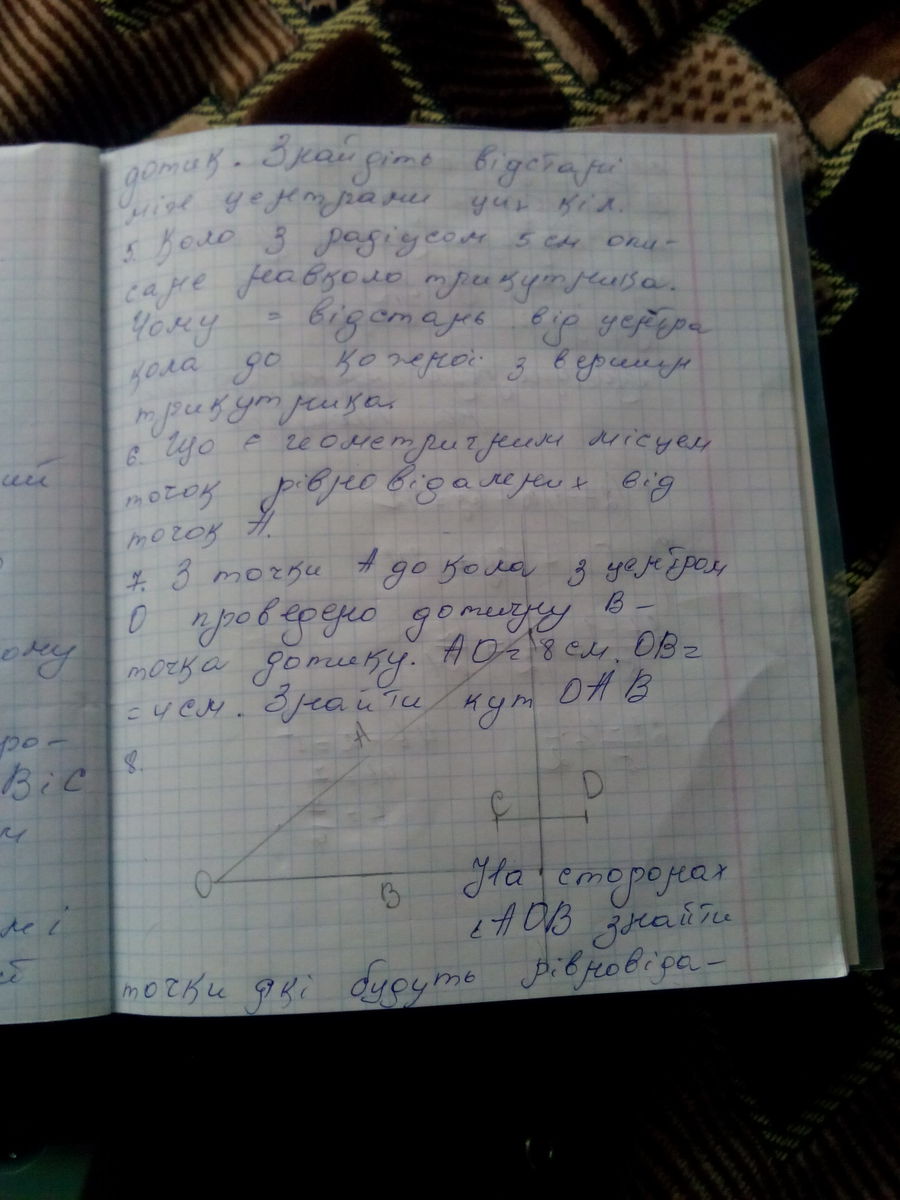 дотик. Знайдіть відстані
між центрами цих кіл.
5. Коло з радіусом 5 см опи-
сане навколо трикутника.
Чому = відстань від центра
кола до кожної з вершин
трикутника.
6. Що є геометричним місцем
точок рівновідалених від
точок А.
7. З точки А до кола з центром
О проведено дотичну В-
точка дотику. АО=8см. ОВ=
=4см. Знайти кут ОАВ
8.
А
C D
О В
На сторонах
∠АОВ знайти
точки які будуть рівновіда-
ий
ому
ро-
В і С
м
м і